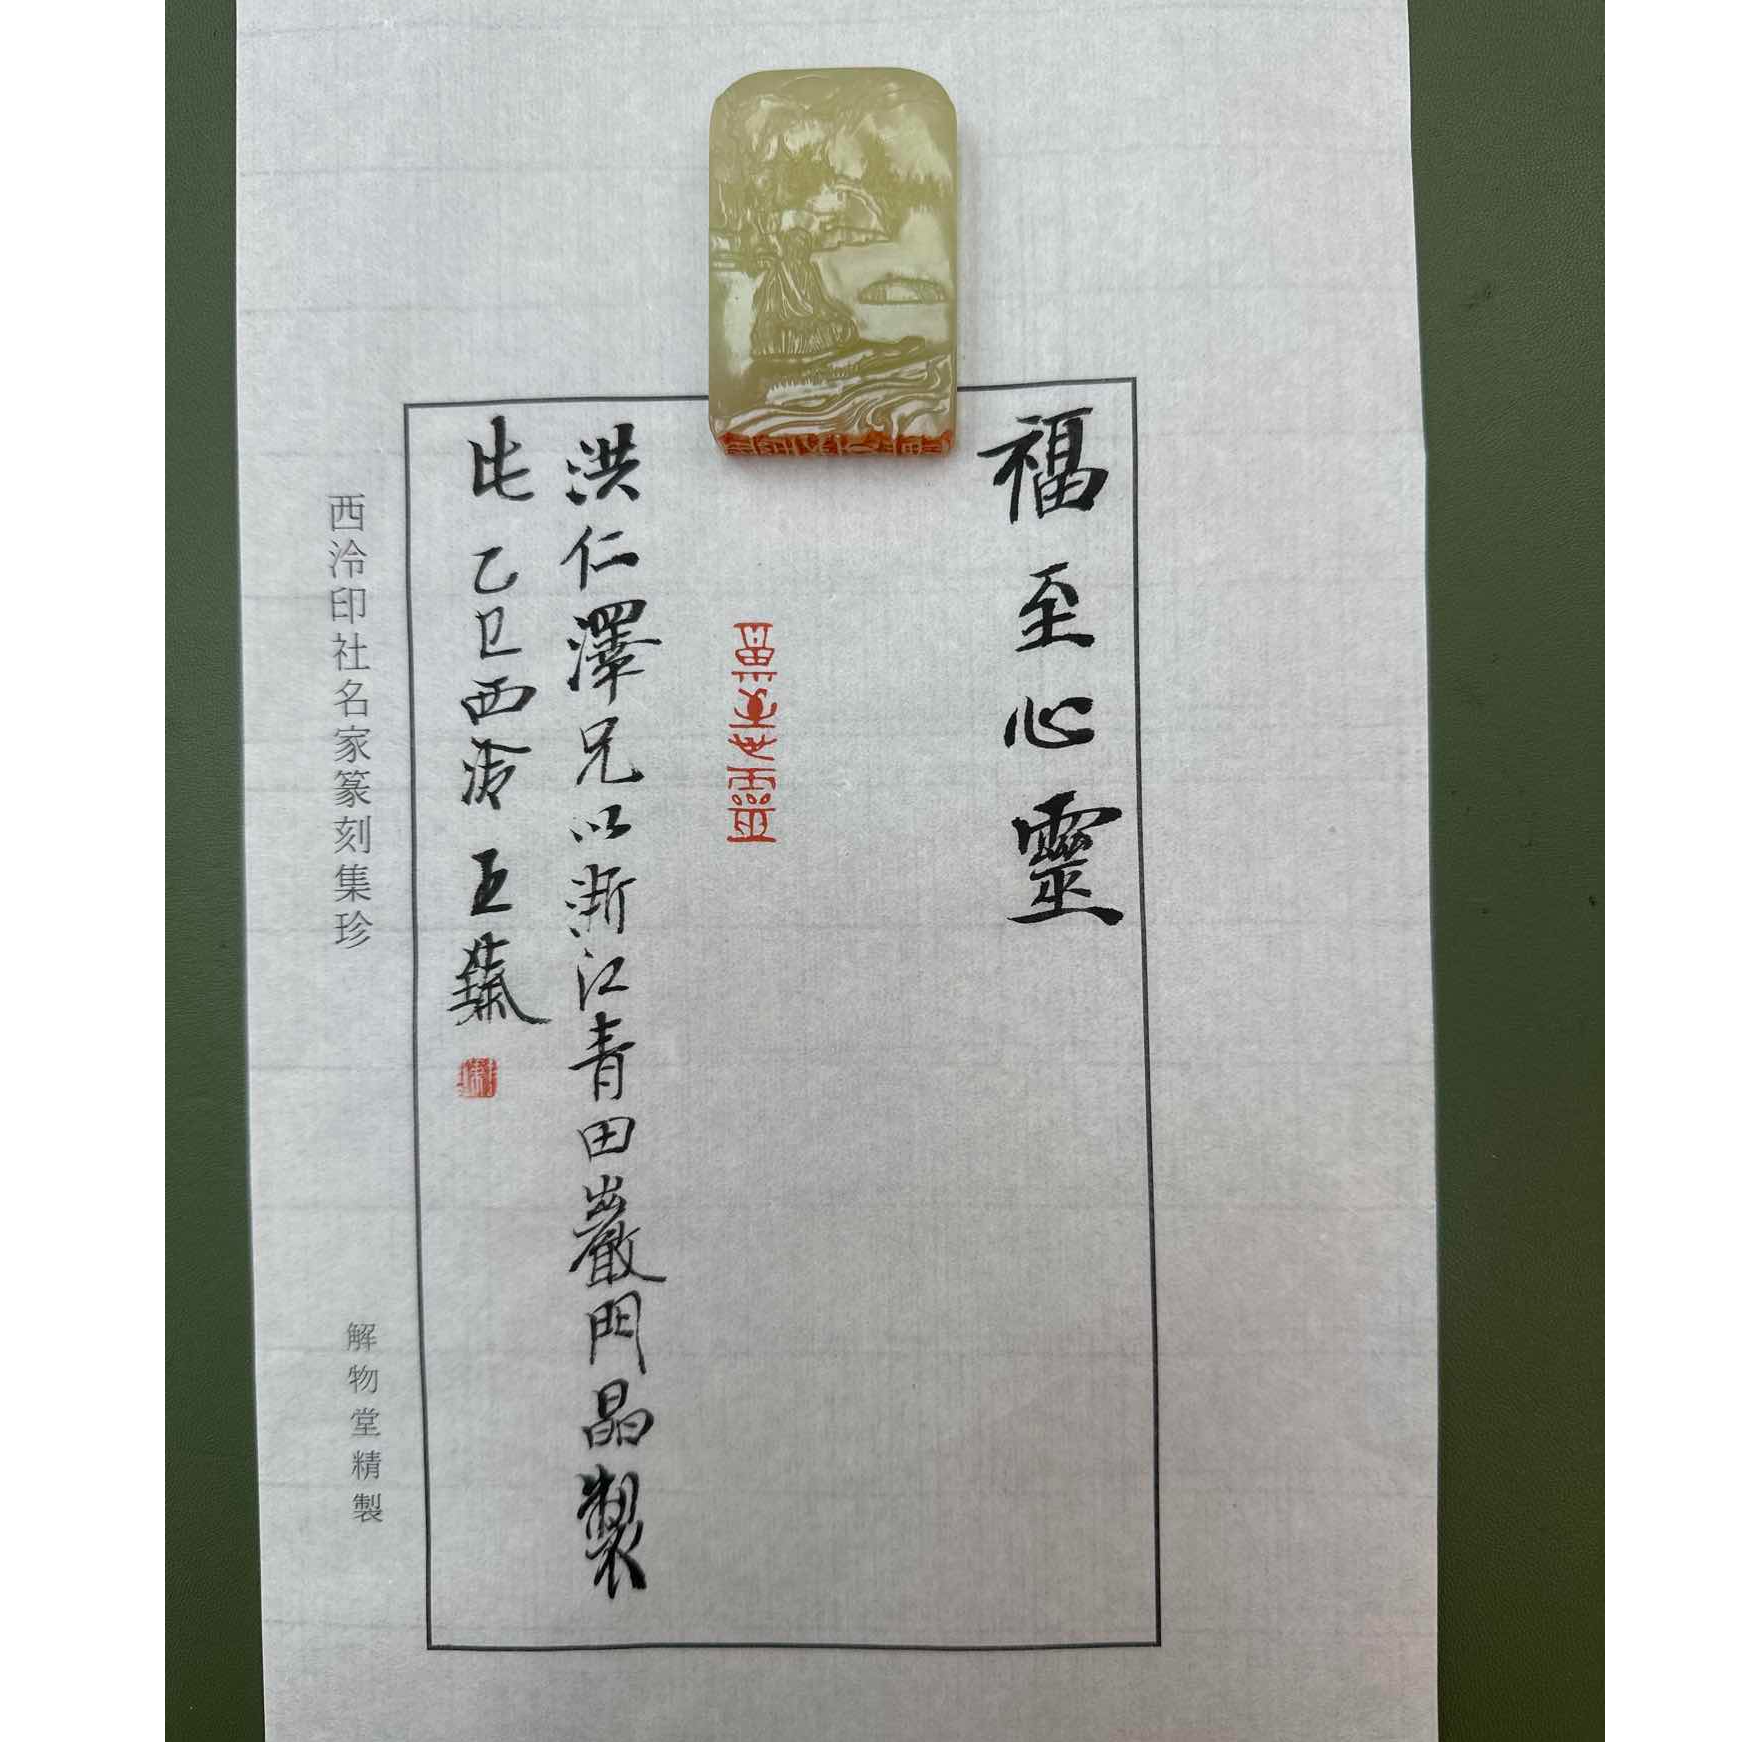 福至心靈
洪仁澤兄以浙江青田巖門晶製
此 乙巳西泠王臻
西泠印社名家篆刻集珍
解物堂精製